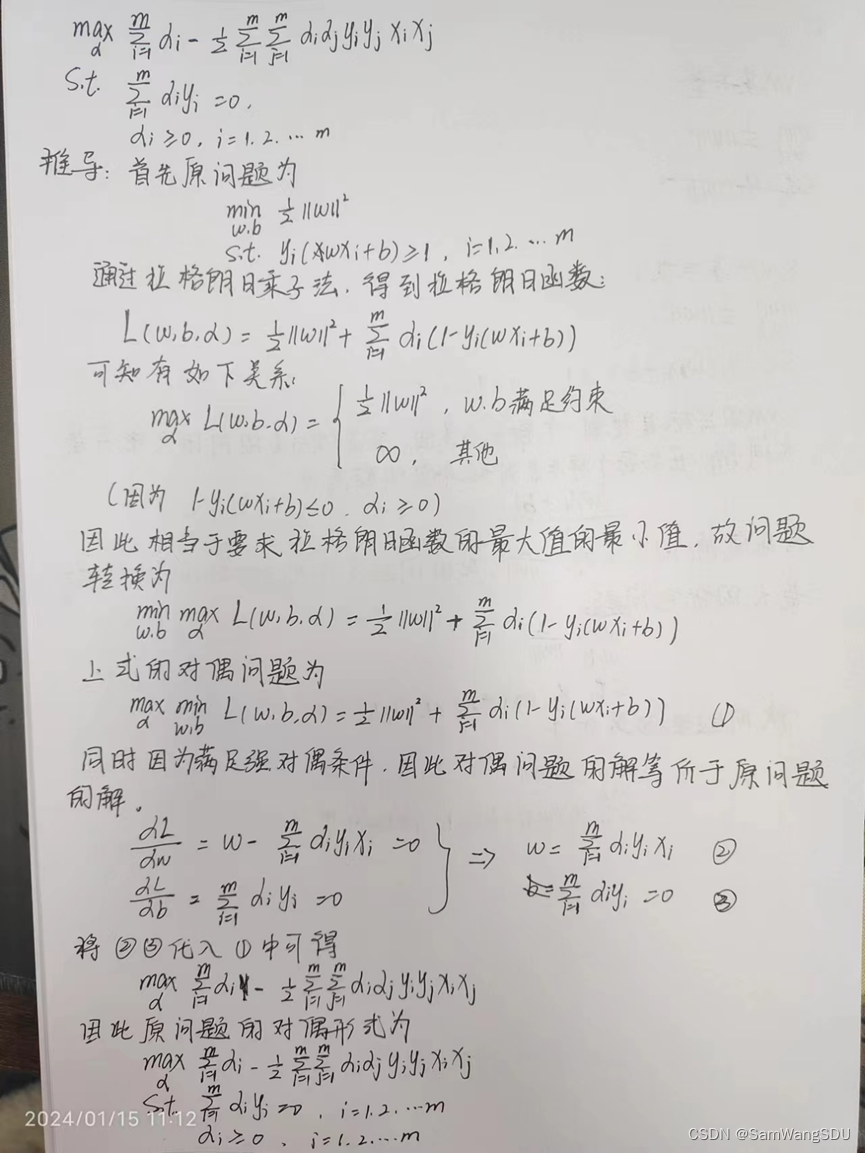 max_α Σ_{i=1}^{m} αi - 1/2 Σ_{i=1}^{m} Σ_{j=1}^{m} αiαjyiyj xixj
S.t. Σ_{i=1}^{m} αiyi = 0,
αi ≥ 0, i=1.2. … m
推导: 首先原问题为
min_{w.b} 1/2 ||w||²
s.t. yi(wxi+b) ≥ 1, i=1,2. … m
通过拉格朗日乘子法, 得到拉格朗日函数:
L(w,b,α) = 1/2 ||w||² + Σ_{i=1}^{m} αi(1-yi(wxi+b))
可知有如下关系:
max_α L(w.b.α) = { 1/2 ||w||², w.b满足约束
∞, 其他
(因为 1-yi(wxi+b) ≤ 0, αi ≥ 0)
因此相当于要求拉格朗日函数的最大值的最小值, 故问题
转换为
min_{w.b} max_α L(w,b,α) = 1/2 ||w||² + Σ_{i=1}^{m} αi(1-yi(wxi+b))
上式的对偶问题为
max_α min_{w,b} L(w,b,α) = 1/2 ||w||² + Σ_{i=1}^{m} αi(1-yi(wxi+b)) ①
同时因为满足强对偶条件, 因此对偶问题的解等价于原问题
的解.
∂L/∂w = w - Σ_{i=1}^{m} αiyixi = 0 } ⇒ w = Σ_{i=1}^{m} αiyixi ②
∂L/∂b = Σ_{i=1}^{m} αiyi = 0 Σ_{i=1}^{m} αiyi = 0 ③
将②③代入①中可得
max_α Σ_{i=1}^{m} αi - 1/2 Σ_{i=1}^{m} Σ_{j=1}^{m} αiαjyiyjxixj
因此原问题的对偶形式为
max_α Σ_{i=1}^{m} αi - 1/2 Σ_{i=1}^{m} Σ_{j=1}^{m} αiαjyiyjxixj
S.t. Σ_{i=1}^{m} αiyi = 0, i=1.2. … m
αi ≥ 0, i=1.2. … m
2024/01/15 11:12
CSDN @SamWangSDU